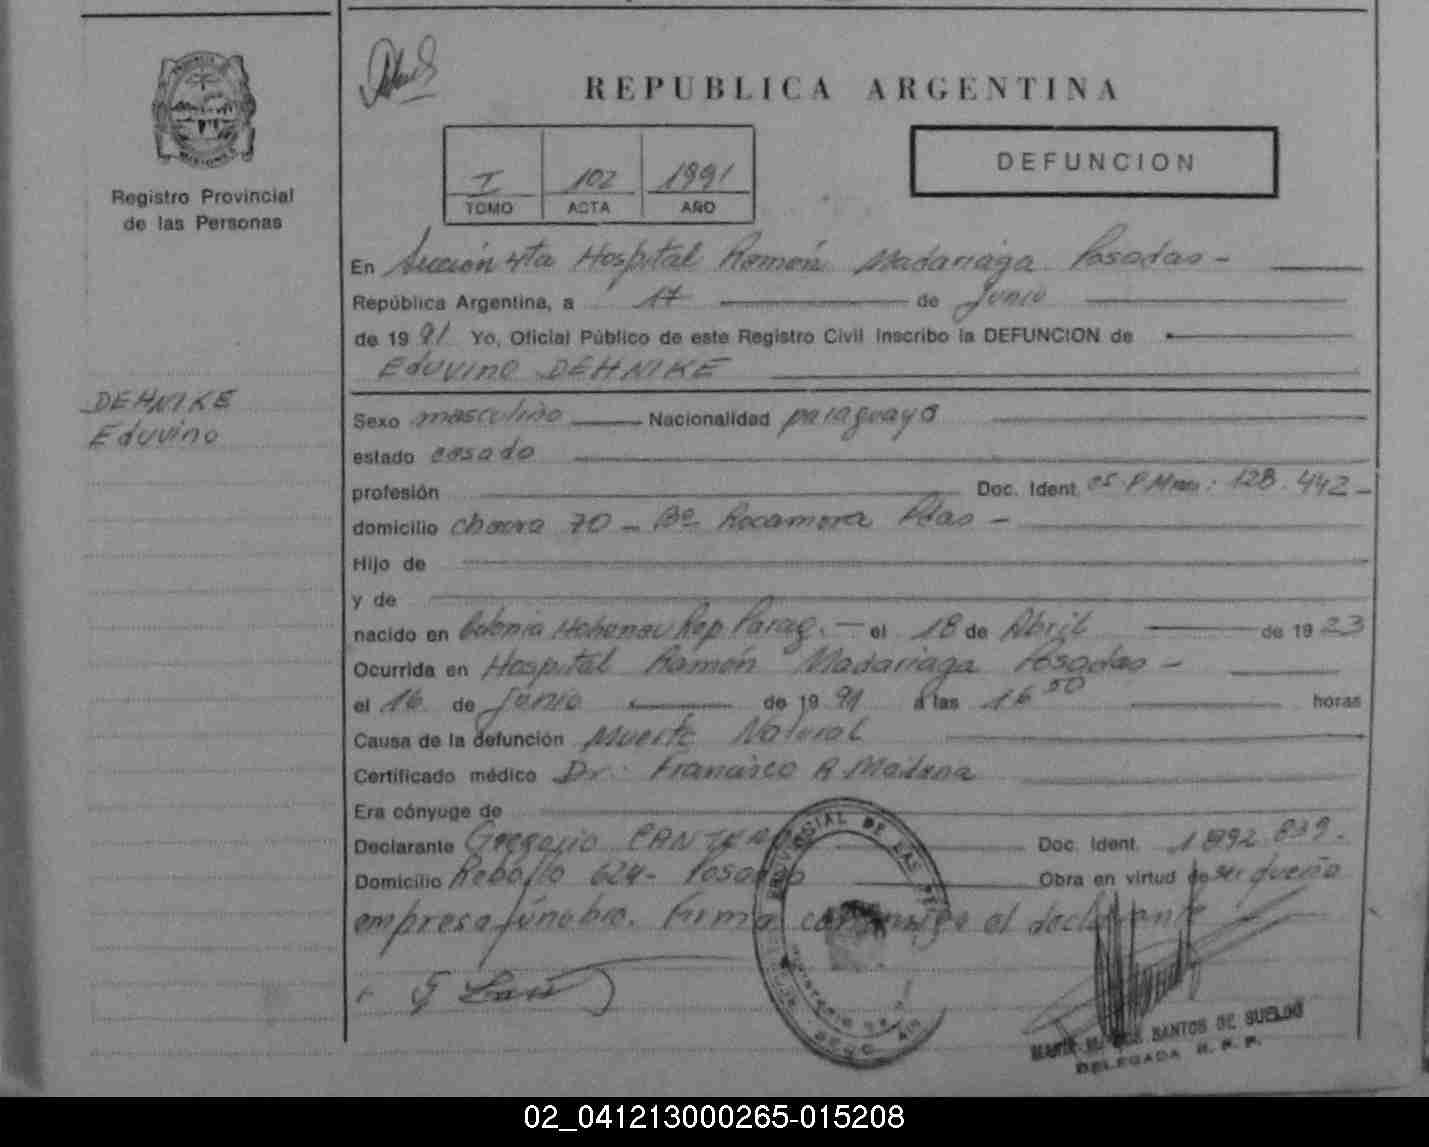 REPUBLICA ARGENTINA
PROVINCIA
MISIONES
Registro Provincial
de las Personas
I 102 1991
TOMO ACTA AÑO
DEFUNCION
En Sección 4ta Hospital Ramón Madariaga Posadas -
República Argentina, a 17 de Junio
de 1991 Yo, Oficial Público de este Registro Civil inscribo la DEFUNCION de
Eduvino DEHNIKE
DEHNIKE
Eduvino
Sexo masculino Nacionalidad paraguaya
estado casado
profesión Doc. Ident. 128.442 -
domicilio chacra 70 - Bº Rocamora Pdas -
Hijo de
y de
nacido en Colonia Hohenau Rep. Parag. - el 18 de Abril de 1923
Ocurrida en Hospital Ramón Madariaga Posadas -
el 16 de Junio de 1991 a las 16 50 horas
Causa de la defunción Muerte Natural
Certificado médico Dr. Francisco R
Era cónyuge de
Declarante Gregorio CANTERO Doc. Ident. 1892.839.
Domicilio Rebollo 624 - Posadas Obra en virtud de ser dueño
empresa fúnebre. Firma conmigo el declarante
MARIA M. DOS SANTOS DE SUELDO
DELEGADA R. P. P.
02_041213000265-015208